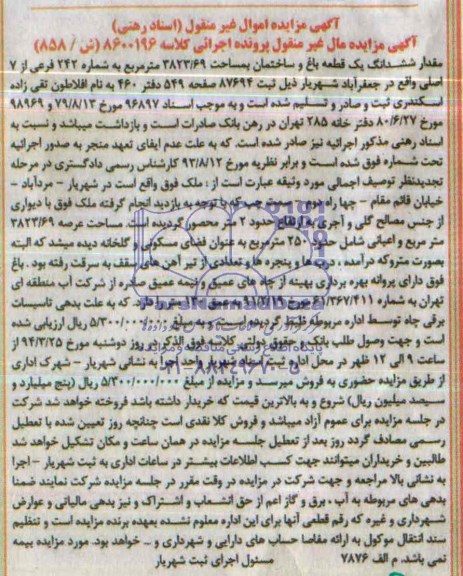 آگهی مزایده اموال غیر منقول (اسناد رهنی)
آگهی مزایده مال غیر منقول پرونده اجرائی کلاسه ۸۶۰۰۱۹۶ (ش / ۸۵۸)
مقدار ششدانگ یک قطعه باغ و ساختمان بمساحت ۳۸۲۳/۶۹ مترمربع به شماره ۲۴۲ فرعی از ۷
اصلی واقع در جعفرآباد شهریار ذیل ثبت ۸۷۶۹۴ صفحه ۵۴۹ دفتر ۴۶۰ به نام افلاطون تقی زاده
اسکندری ثبت و صادر و تسلیم شده است و به موجب اسناد ۹۶۸۹۷ مورخ ۷۹/۸/۱۳ و ۹۸۹۶۹
مورخ ۸۰/۶/۲۷ دفتر خانه ۲۸۵ تهران در رهن بانک صادرات است و بازداشت میباشد و نسبت به
اسناد رهنی مذکور اجرائیه نیز صادر شده است. که به علت عدم ایفای تعهد منجر به صدور اجرائیه
تحت شماره فوق شده است و برابر نظریه مورخ ۹۳/۸/۱۲ کارشناس رسمی دادگستری در مرحله
تجدیدنظر توصیف اجمالی مورد وثیقه عبارت است از : ملک فوق واقع است در شهریار – مردآباد –
خیابان قائم مقام – چهار راه دوم – سمت چپ که با توجه به بازدید انجام گرفته ملک فوق با دیواری
از جنس مصالح گلی و آجری به ارتفاع حدود ۲ متر محصور گردیده است. مساحت عرصه ۳۸۲۳/۶۹
متر مربع و اعیانی شامل حدود ۲۵۰ مترمربع به عنوان فضای مسکونی و گلخانه دیده میشد که البته
بصورت متروکه درآمده ، درب ها و پنجره ها و تعدادی از تیر آهن های سقف به سرقت رفته بود . باغ
فوق دارای پروانه بهره برداری بهینه از چاه های عمیق و نیمه عمیق صادره از شرکت آب منطقه ای
تهران به شماره ۶۱/۳۶۷/۴۱۱ مورخ به عمق متر را دارد. که به علت بدهی تاسیسات
برقی چاه توسط اداره مربوطه گردیده است. و به مبلغ ۵/۳۰۰/۰۰۰/۰۰۰ ریال ارزیابی شده
است و جهت وصول طلب بانک و حقوق دولتی کلاسه فوق الذکر در روز دوشنبه مورخ ۹۴/۳/۲۵ از
ساعت ۹ الی ۱۲ ظهر در محل اداره ثبت اسناد شهریار واحد اجرا به نشانی شهریار – شهرک اداری
از طریق مزایده حضوری به فروش میرسد و مزایده از مبلغ ۵/۳۰۰/۰۰۰/۰۰۰ ریال (پنج میلیارد و
سیصد میلیون ریال) شروع و به بالاترین قیمت که خریدار داشته باشد فروخته خواهد شد شرکت
در جلسه مزایده برای عموم آزاد میباشد و فروش کلا نقدی است چنانچه روز تعیین شده با تعطیل
رسمی مصادف گردد روز بعد از تعطیل جلسه مزایده در همان ساعت و مکان تشکیل خواهد شد
طالبین و خریداران میتوانند جهت کسب اطلاعات بیشتر در ساعات اداری به ثبت شهریار – اجرا
به نشانی بالا مراجعه و جهت شرکت در مزایده در وقت مقرر در جلسه مزایده شرکت نمایند ضمنا
بدهی های مربوطه به آب ، برق و گاز اعم از حق انشعاب و اشتراک و نیز بدهی مالیاتی و عوارض
شهرداری و غیره که رقم قطعی آنها برای این اداره معلوم نشده بعهده برنده مزایده است و تنظیم
سند انتقال موکول به ارائه مفاصا حساب های دارایی و شهرداری و ... خواهد بود. مورد مزایده بیمه
نمی باشد. م الف ۷۸۷۶ مسئول اجرای ثبت شهریار